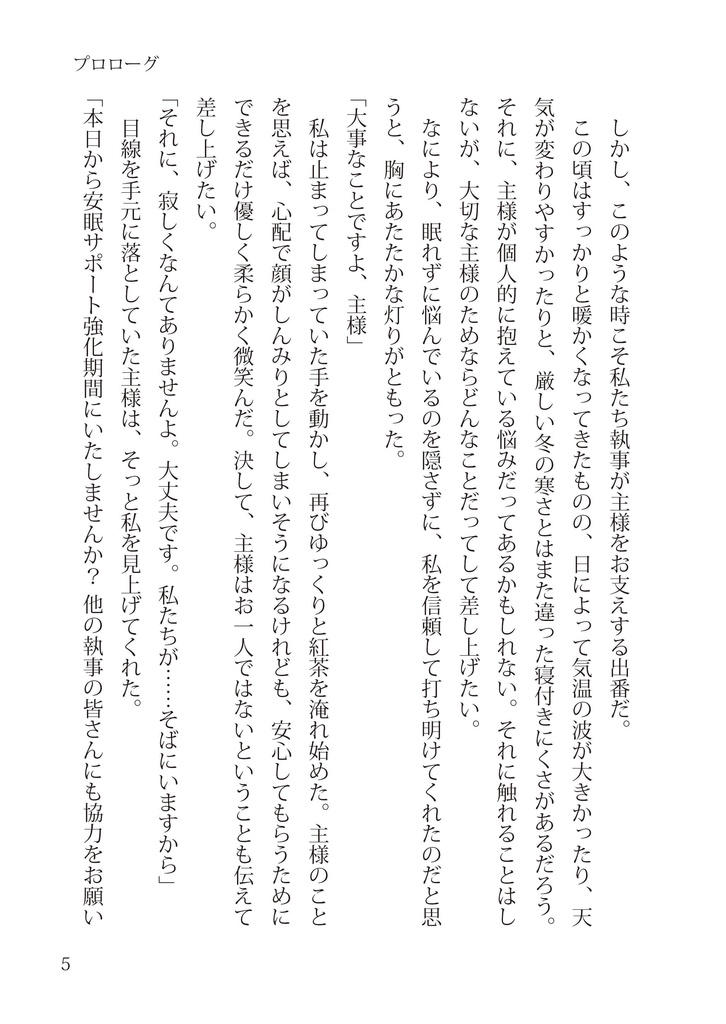 プロローグ
　しかし、このような時こそ私たち執事が主様をお支えする出番だ。
　この頃はすっかりと暖かくなってきたものの、日によって気温の波が大きかったり、天
気が変わりやすかったりと、厳しい冬の寒さとはまた違った寝付きにくさがあるだろう。
それに、主様が個人的に抱えている悩みだってあるかもしれない。それに触れることはし
ないが、大切な主様のためならどんなことだってして差し上げたい。
　なにより、眠れずに悩んでいるのを隠さずに、私を信頼して打ち明けてくれたのだと思
うと、胸にあたたかな灯りがともった。
「大事なことですよ、主様」
　私は止まってしまっていた手を動かし、再びゆっくりと紅茶を淹れ始めた。主様のこと
を思えば、心配で顔がしんみりとしてしまいそうになるけれども、安心してもらうために
できるだけ優しく柔らかく微笑んだ。決して、主様はお一人ではないということも伝えて
差し上げたい。
「それに、寂しくなんてありませんよ。大丈夫です。私たちが……そばにいますから」
　目線を手元に落としていた主様は、そっと私を見上げてくれた。
「本日から安眠サポート強化期間にいたしませんか？ 他の執事の皆さんにも協力をお願い
5